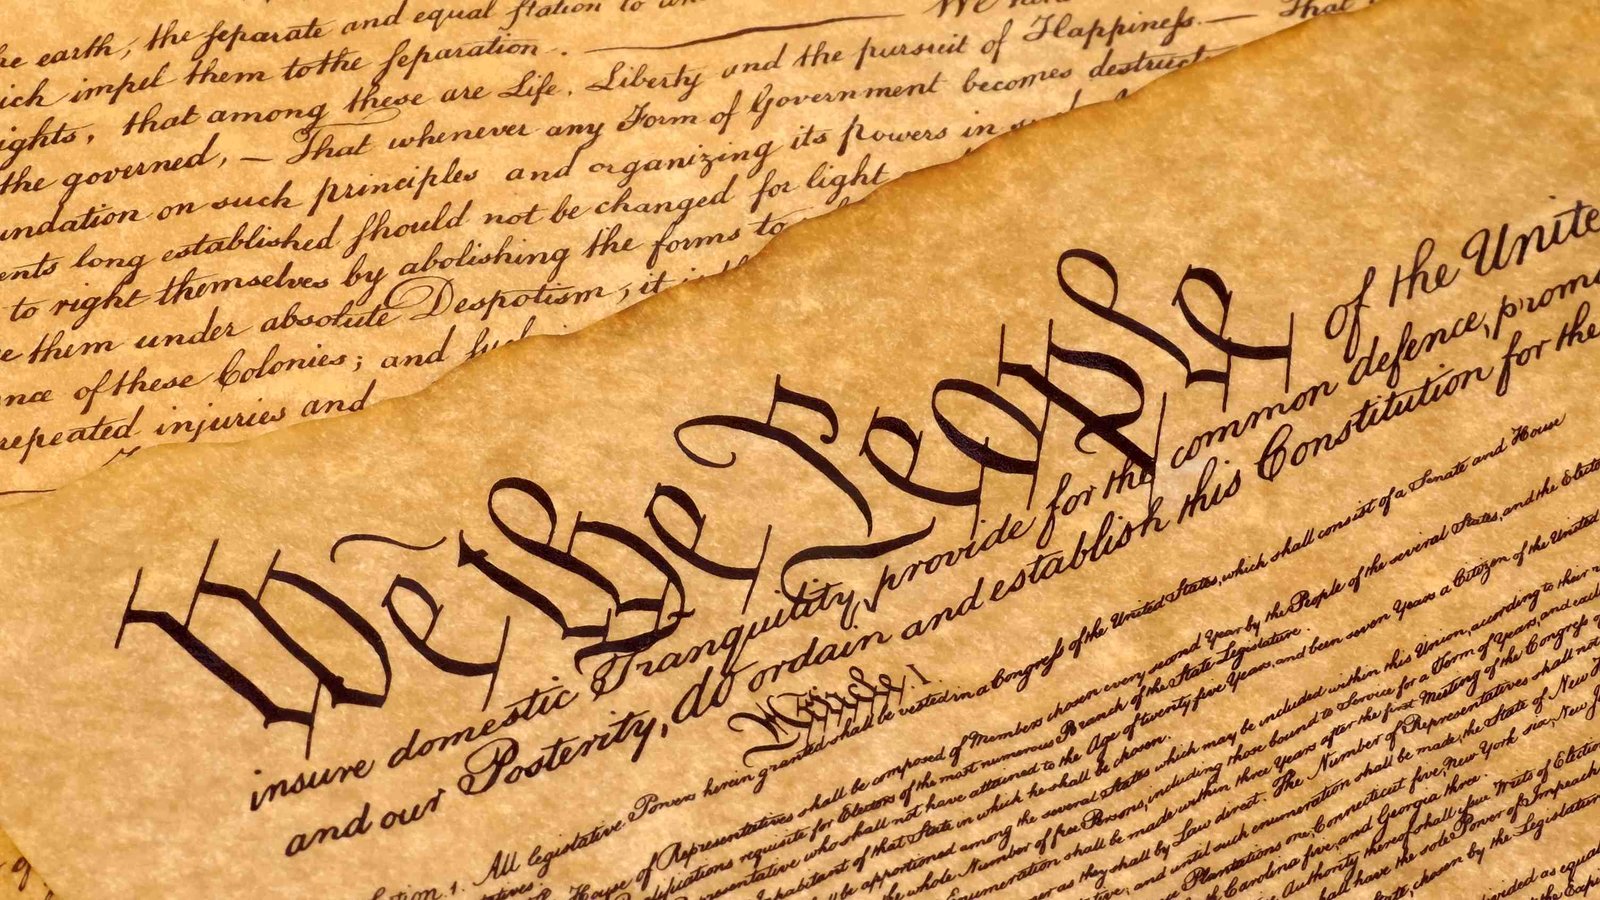 he earth, the separate and equal station to
We
hich impel them to the separation.
That
ights, that among these are Life, Liberty and the pursuit of Happiness.—
the governed, — That whenever any Form of Government becomes
undation on such principles and organizing its powers in
ents long established should not be changed for light
to right themselves by abolishing the forms to
e them under absolute Despotism, it
nce of these Colonies; and
repeated injuries and
We the People of the Unite
insure domestic Tranquility, provide for the common defence, promo
and our Posterity, do ordain and establish this Constitution for the
Article. I.
ction. 1. All legislative Powers herein granted shall be vested in a Congress of the United States, which shall consist of a Senate and House
House of Representatives shall be composed of Members chosen every second Year by the People of the several States, and the Electo
requisite for Electors of the most numerous Branch of the State Legislature.
who shall not have attained to the Age of twenty five Years, and been seven Years a Citizen of the United
Inhabitant of that State in which he shall be chosen.
be apportioned among the several States which may be included within this Union, according to their
the whole Number of free Persons, including those bound to Service for a Term of Years, and
Enumeration shall be made within three Years after the first Meeting of the Congress of
as they shall by Law direct. The Number of Representatives shall not
and until such enumeration shall be made, the State of New
Plantations one, Connecticut five, New York six, New
Carolina five, and Georgia three.
Authority thereof shall issue Writs of Electio
shall have the sole Power of Impeach
chosen by the Legislatu
divided as equal